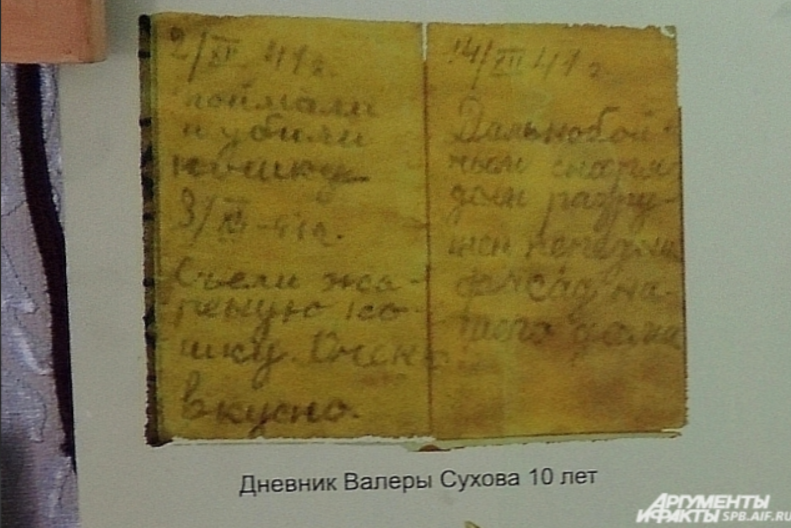 2/XII 41 г.
поймали
и убили
кошку
3/XII-41г.
Съели жа-
реную ко-
шку. Очень
вкусно.
14/XII 41 г
Дальнобой-
ным снаря-
дом разру-
шен
фасад на-
шего дома
Дневник Валеры Сухова 10 лет
АРГУМЕНТЫ
И ФАКТЫ SPB.AIF.RU